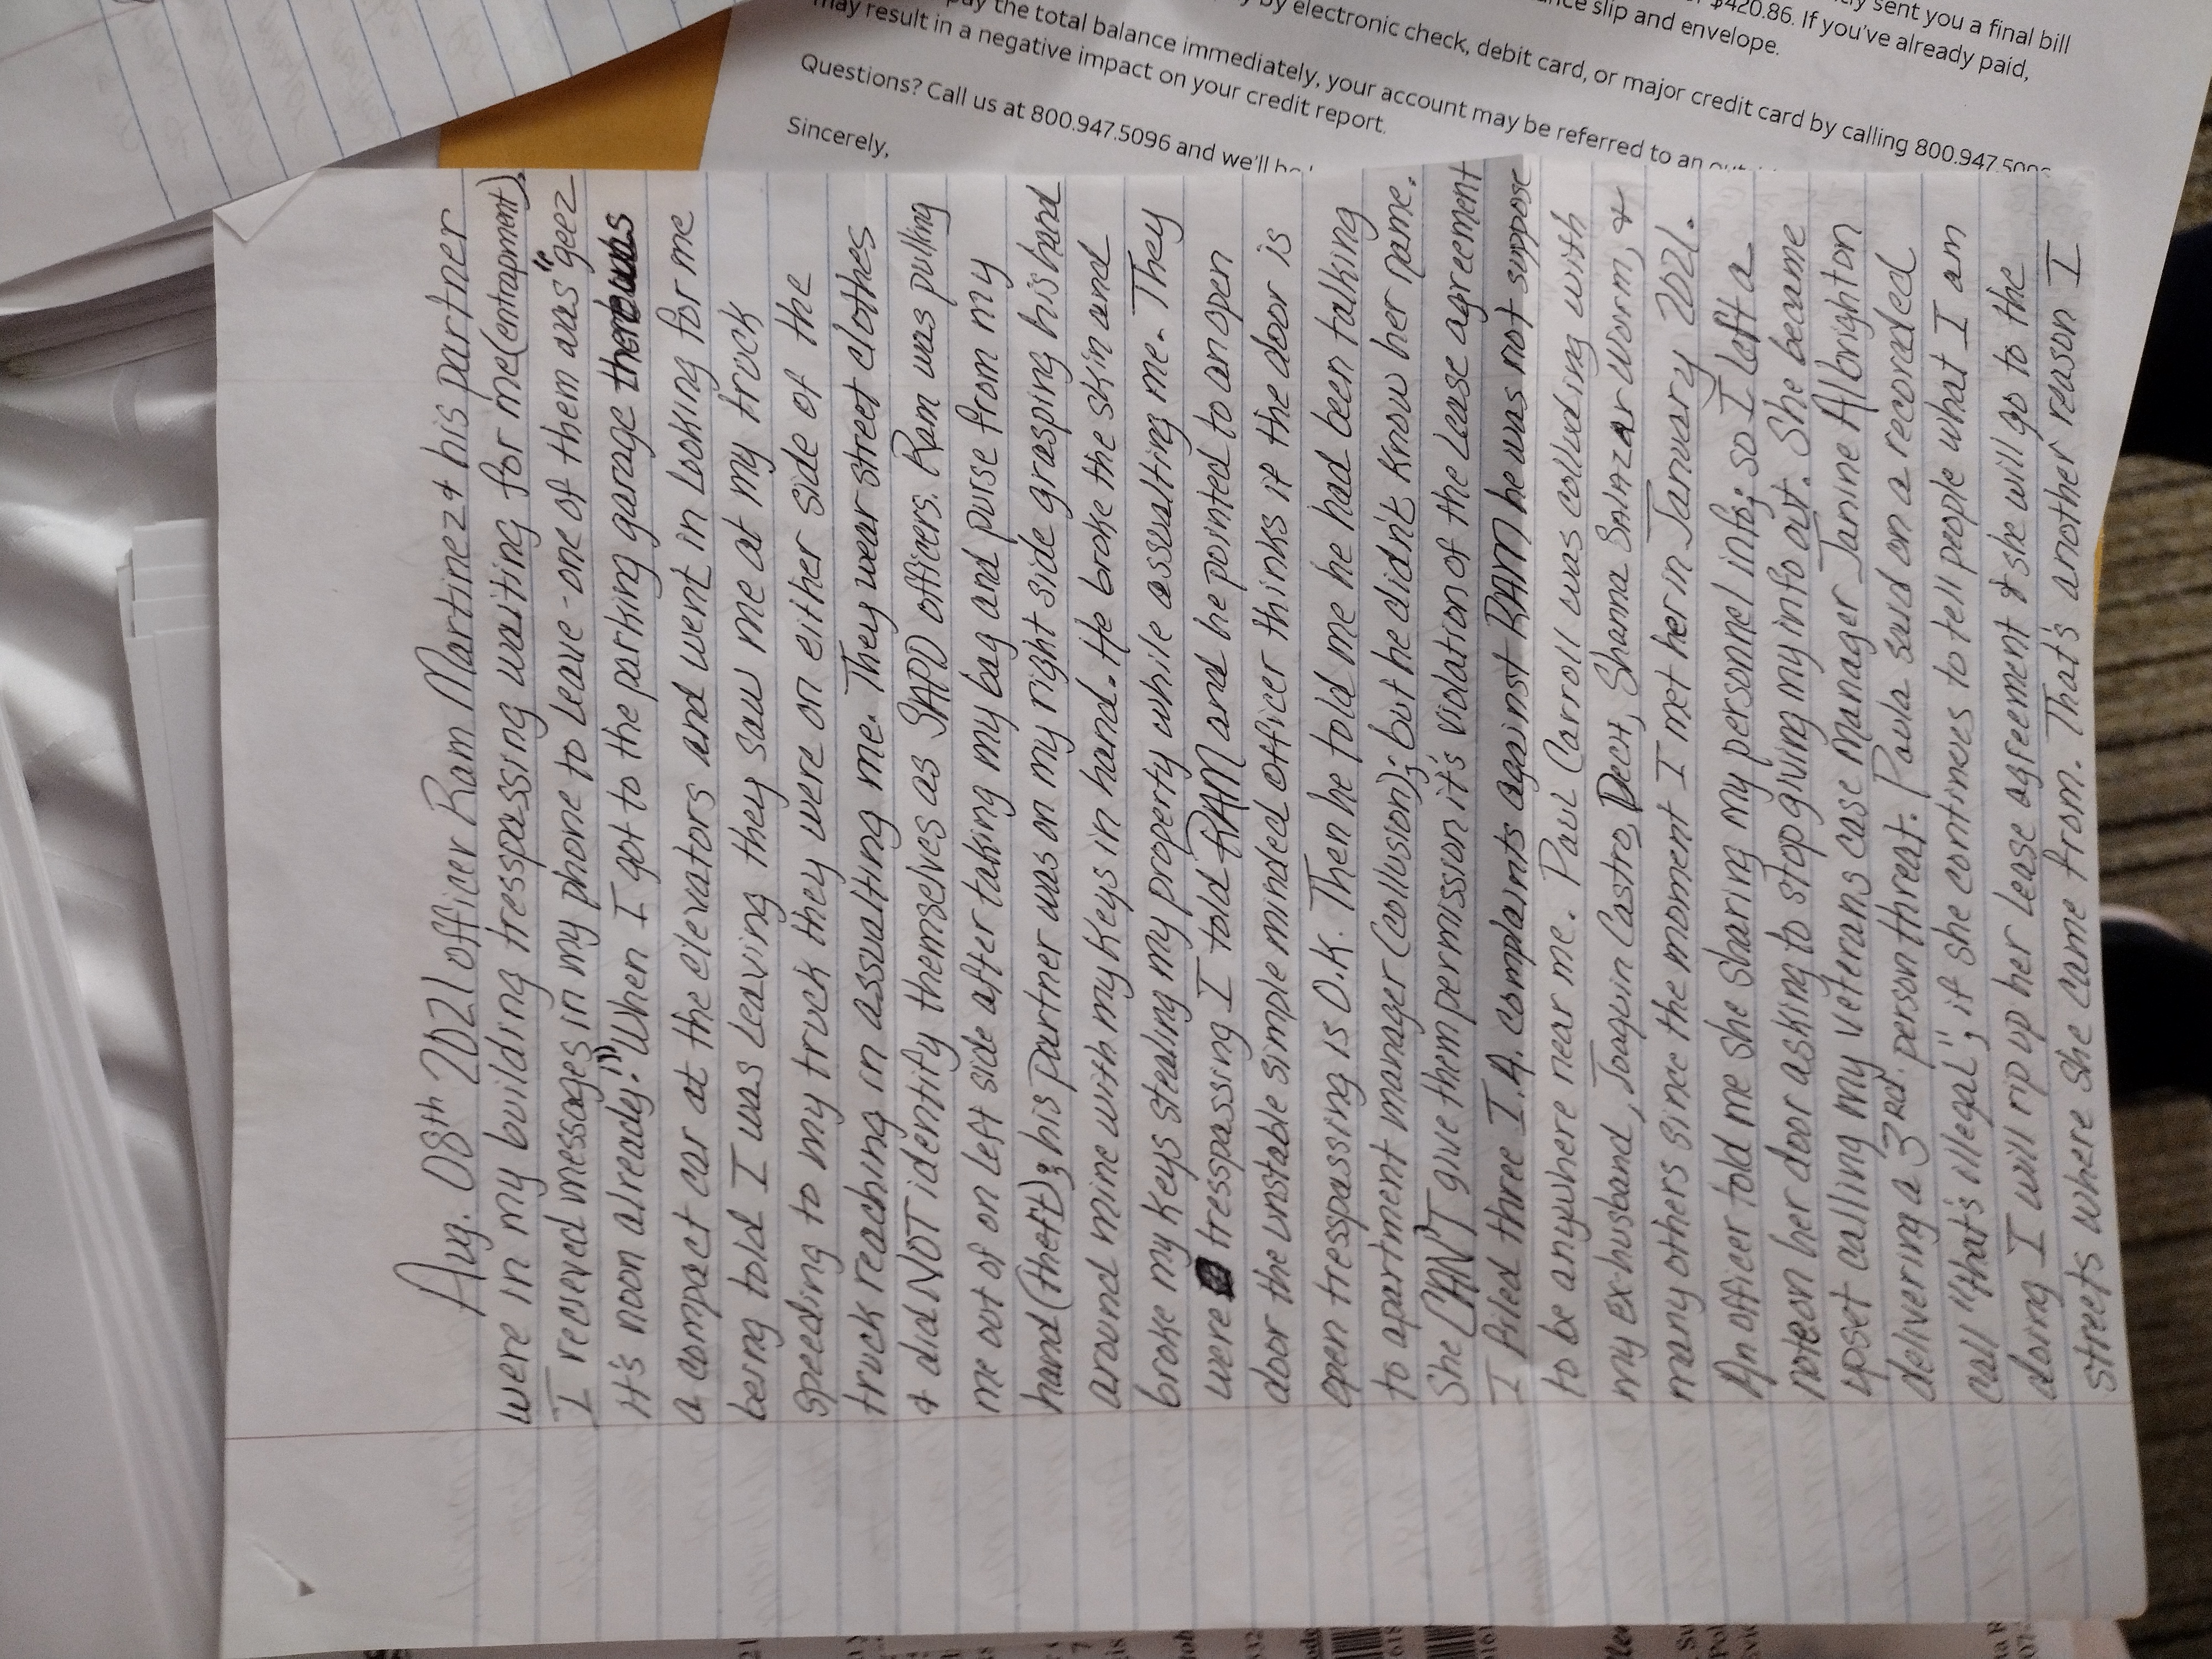 Aug. 08th 2021 officer Ram Martinez & his partner
were in my building tresspassing waiting for me (entrapment).
I recieved messages in my phone to leave - one of them was "geez
it's noon already." When I got to the parking garage there was
a compact car at the elevators and went in looking for me
being told I was leaving they saw me at my truck
speeding to my truck they were on either side of the
truck reaching in assualting me. They wear street clothes
& did NOT identify themselves as SAPD officers. Ram was pulling
me out of on left side after taking my bag and purse from my
hand (theft); his partner was on my right side grasping his hand
around mine with my keys in hand. He broke the skin and
broke my keys stealing my property while assaulting me. They
were tresspassing I told RAM and he pointed to an open
door the unstable simple minded officer thinks if the door is
open tresspassing is O.K. Then he told me he had been talking
to apartment manager (collusion); but he didn't know her name.
She CAN'T give them permission it's violation of the lease agreement
I filed three I.A. complaints against RAM he was not suppose
to be anywhere near me. Paul Carroll was colluding with
my ex-husband, Joaquin Castro, Dect, Shanna Salazar Worm, &
many others since the moment I met her in January 2021.
An officer told me she sharing my personnel info; so I left a
note on her door asking to stop giving my info out. She became
upset calling my veterans case manager Janine Albrighton
delivering a 3rd. person threat. Paula said on a recorded
call "that's illegal"; if she continues to tell people what I am
doing I will rip up her lease agreement & she will go to the
streets where she came from. That's another reason I
sent you a final bill
$420.86. If you've already paid,
slip and envelope.
by electronic check, debit card, or major credit card by calling 800.947.
pay the total balance immediately, your account may be referred to an
may result in a negative impact on your credit report.
Questions? Call us at 800.947.5096 and we'll
Sincerely,